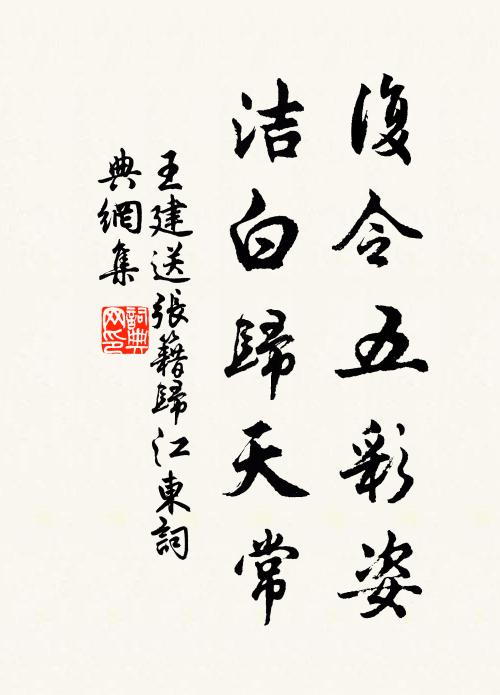 復令五彩姿
洁白歸天常
王建送張籍歸江東詞
典網集
詞典
网印